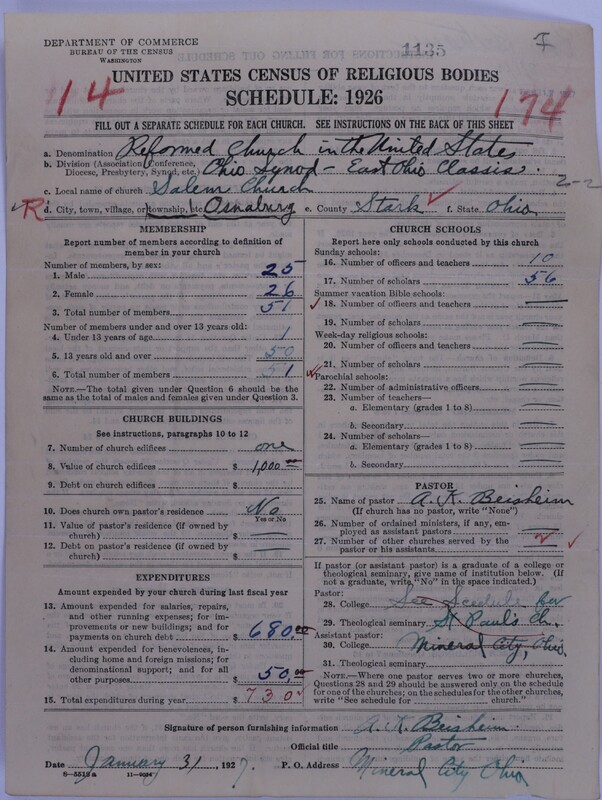 DEPARTMENT OF COMMERCE
BUREAU OF THE CENSUS
WASHINGTON
1135
I
UNITED STATES CENSUS OF RELIGIOUS BODIES
SCHEDULE: 1926
14
174
FILL OUT A SEPARATE SCHEDULE FOR EACH CHURCH. SEE INSTRUCTIONS ON THE BACK OF THIS SHEET
a. Denomination Reformed Church in the United States
b. Division (Association, Conference, Diocese, Presbytery, Synod, etc.) Ohio Synod - East Ohio Classis.
2-2
c. Local name of church Salem Church
R d. City, town, village, or township, etc. Osnaburg e. County Stark f. State Ohio
MEMBERSHIP
Report number of members according to definition of
member in your church
Number of members, by sex:
1. Male 25
2. Female 26
3. Total number of members 51
Number of members under and over 13 years old:
4. Under 13 years of age 1
5. 13 years old and over 50
6. Total number of members 51
NOTE.—The total given under Question 6 should be
the same as the total of males and females given under Question 3.
CHURCH BUILDINGS
See instructions, paragraphs 10 to 12
7. Number of church edifices one
8. Value of church edifices $ 1,000.00
9. Debt on church edifices $
10. Does church own pastor's residence No
Yes or No
11. Value of pastor's residence (if owned by
church) $
12. Debt on pastor's residence (if owned by
church) $
EXPENDITURES
Amount expended by your church during last fiscal year
13. Amount expended for salaries, repairs,
and other running expenses; for im-
provements or new buildings; and for
payments on church debt $ 680.00
14. Amount expended for benevolences,
including home and foreign missions; for
denominational support; and for all
other purposes $ 50.00
15. Total expenditures during year $ 730
CHURCH SCHOOLS
Report here only schools conducted by this church
Sunday schools:
16. Number of officers and teachers 10
17. Number of scholars 56
Summer vacation Bible schools:
18. Number of officers and teachers
19. Number of scholars
Week-day religious schools:
20. Number of officers and teachers
21. Number of scholars
Parochial schools:
22. Number of administrative officers
23. Number of teachers—
a. Elementary (grades 1 to 8)
b. Secondary
24. Number of scholars—
a. Elementary (grades 1 to 8)
b. Secondary
PASTOR
25. Name of pastor A. K. Beisheim
(If church has no pastor, write "None")
26. Number of ordained ministers, if any, em-
ployed as assistant pastors
27. Number of other churches served by the
pastor or his assistants 2
If pastor (or assistant pastor) is a graduate of a college or
theological seminary, give name of institution below. (If
not a graduate, write "No" in the space indicated.)
Pastor:
28. College See Schedule for
29. Theological seminary St Paul's Ch.
Assistant pastor:
30. College Mineral City, Ohio.
31. Theological seminary
NOTE.—Where one pastor serves two or more churches,
Questions 28 and 29 should be answered only on the schedule
for one of the churches; on the schedules for the other churches,
write "See schedule for church."
Signature of person furnishing information A. K. Beisheim
Official title Pastor
Date January 31, 1927. P. O. Address Mineral City Ohio